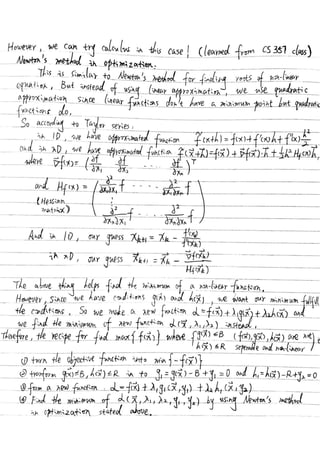 However, we can try calculus in this case! (learned from CS 357 class)
Newton's method in optimization:
This is similar to Newton's method for finding roots of non-linear
equation, But instead of using linear approximation, we use quadratic
approximation since linear functions don't have a minimum point but quadratic
functions do.
So according to Taylor series:
in 1D, we have approximated function f̂(x+h) = f(x)+f'(x)h+f''(x)h²/2
and in nD, we have approximated function f̂(x⃗+h⃗) = f(x⃗) + ∇f(x⃗)·h⃗ + ½h⃗ᵀH_f(x)h⃗,
where ∇f(x⃗) = (∂f/∂x₁ ∂f/∂x₂ ... ∂f/∂xₙ)ᵀ
and H_f(x) = (∂²/∂x₁∂x₁ f ... ∂²/∂x₁∂xₙ f
(Hessian
matrix) ∂²/∂xₙ∂x₁ f ... ∂²/∂xₙ∂xₙ f)
And in 1D, our guess x_{k+1} = x_k - f'(x_k)/f''(x_k)
in nD, our guess x⃗_{k+1} = x⃗_k - ∇f(x⃗_k)/H_f(x⃗_k)
The above thing helps find the minimum of a non-linear function.
However, since we have conditions g(x) and h(x⃗), we want our minimum fulfill
the conditions. So we make a new function L = f(x⃗)+λ₁g(x⃗)+λ₂h(x⃗) and
we find the minimum of new function L(x⃗, λ₁, λ₂) instead.
Therefore, the recipe for find max{f(x⃗)} where { g(x⃗) ≤ B (f(x⃗), g(x⃗), h(x⃗) are
h(x⃗) ≤ R seperate and non-linear)
① turn the objective function into min{-f(x⃗)}
② transform g(x⃗)≤B, h(x⃗)≤R in to g₁=g(x⃗)-B+y₁=0 and h₁=h(x⃗)-R+y₂=0
③ form a new function L = f(x⃗) + λ₁g₁(x⃗,y₁) + λ₂h₁(x⃗,y₂)
④ Find the minimum of L(x⃗, λ₁, λ₂, y₁, y₂) by using Newton's method
in optimization stated above.